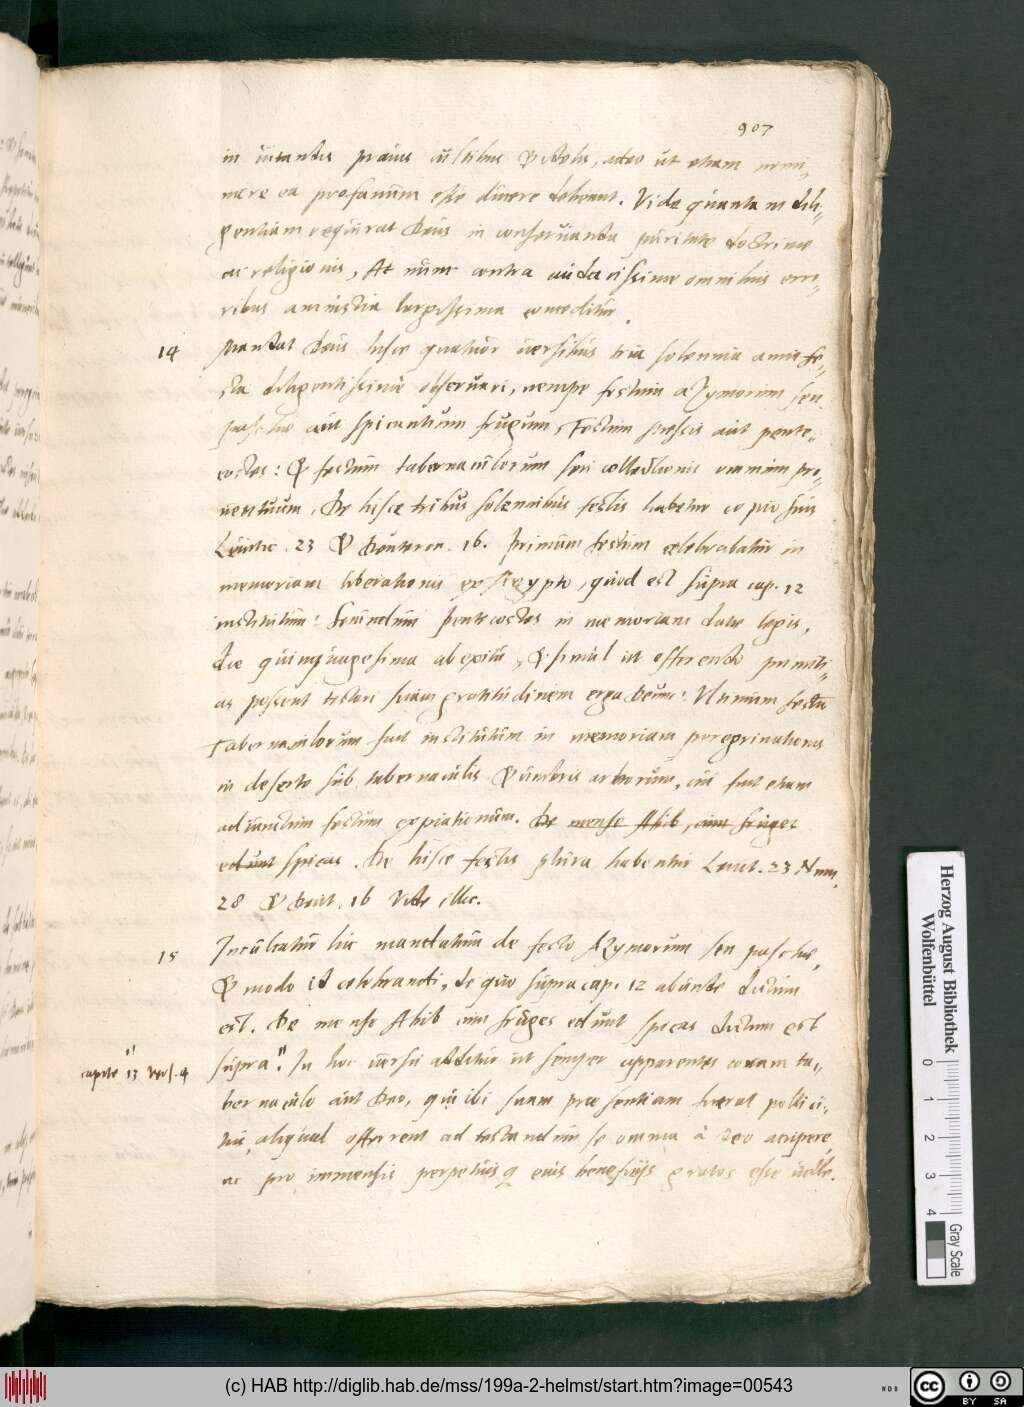 907
in vitandis pravis cultibus & idolis, adeo ut etiam nomi„
nare ea profanum esse ducere debeant. Vide quantam dili„
gentiam requirat Deus in conservanda puritate doctrinae
ac religionis, At nunc contra audacissime omnibus erro„
ribus amnistia largissima conceditur.
14 Mandat Deus hisce quatuor versibus tria solennia annua fe„
sta diligentissime observari, nempe festum azymorum seu
paschae aut spicantium frugum, Festum Messis aut pente„
costes: & festum tabernaculorum seu collectionis omnium pro„
ventuum. De hisce tribus solennibus festis habetur copiosius
Levitic. 23 & Deuteron. 16. Primum festum celebrabatur in
memoriam liberationis ex Aegypto, quod est supra cap. 12
institutum: Secundum pentecostes in memoriam datae legis,
die quinquagesima ab exitu, & simul ut offerendo primiti„
as possent testari suam gratitudinem erga Deum: Ultimum festū
Tabernaculorum fuit institutum in memoriam peregrinationis
in deserto sub tabernaculis & umbris arborum, cui fuit etiam
adiunctum festum expiationum. De mense Abib, cum fruges
edunt spicas. De hisce festis plura habentur Levit. 23 Num.
28 & Deut. 16 Vide illic.
15 Inculcatur hic mandatum de festo Azymorum seu paschae,
& modo id celebrandi, de quo supra cap. 12 abunde dictum
est. De mense Abib cum fruges edunt spicas dictum est
supra". In hoc versu additur ut semper apparentes coram ta„
" capite 13 vers. 4
bernaculo aut Deo, qui ibi suam praesentiam fuerat pollici„
tus, aliquid offerrent ad testandum se omnia à Deo accipere,
ac pro immensis perpetuisq eius beneficijs gratos esse velle.
Herzog August Bibliothek
Wolfenbüttel
0 1 2 3 4
Gray Scale
(c) HAB http://diglib.hab.de/mss/199a-2-helmst/start.htm?image=00543
cc BY SA